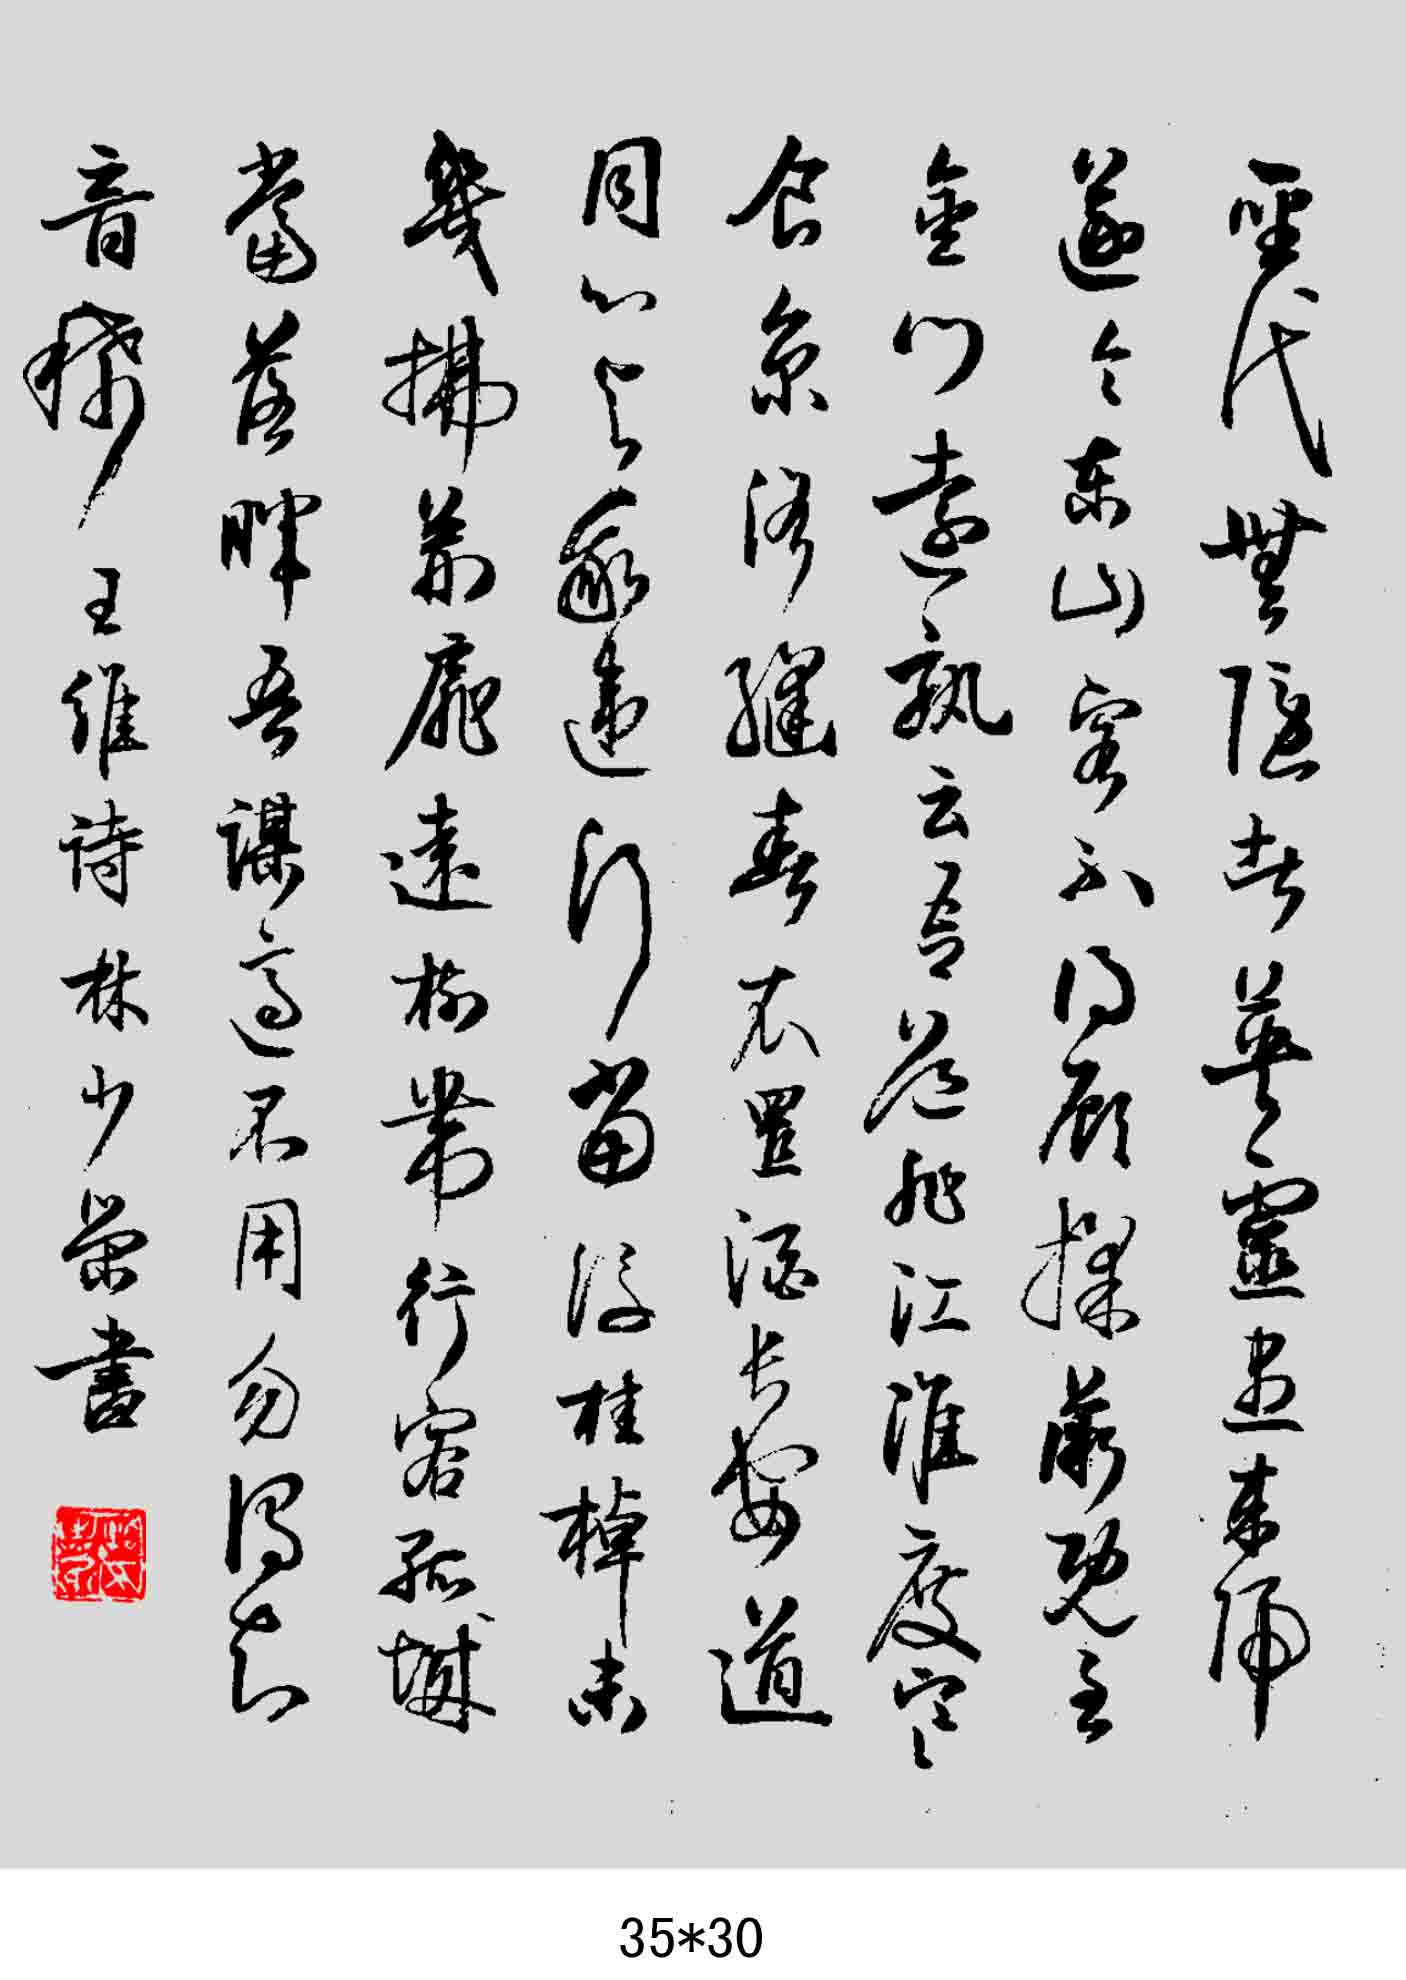 聖代無隱者英靈盡來歸
遂令東山客不得顧採薇既至
金門遠孰云吾道非江淮度寒
食京洛縫春衣置酒長安道
同心與我違行當浮桂棹未
幾拂荊扉遠樹帶行客孤城
當落暉吾謀適不用勿謂知
音稀 王維詩林少榮書
35*30